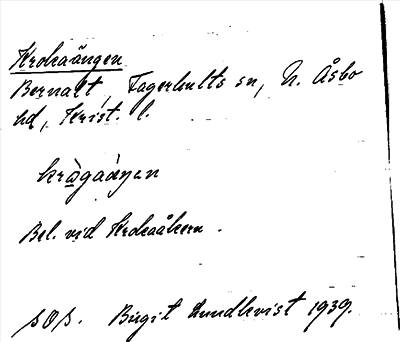 Krokaängen
Bernalt, Fagerhults sn, N. Åsbo
hd, Krist. l.
krɑ̀gaáŋen
Bel. vid Krokaåkern.
SOS. Birgit Lundkvist 1939.